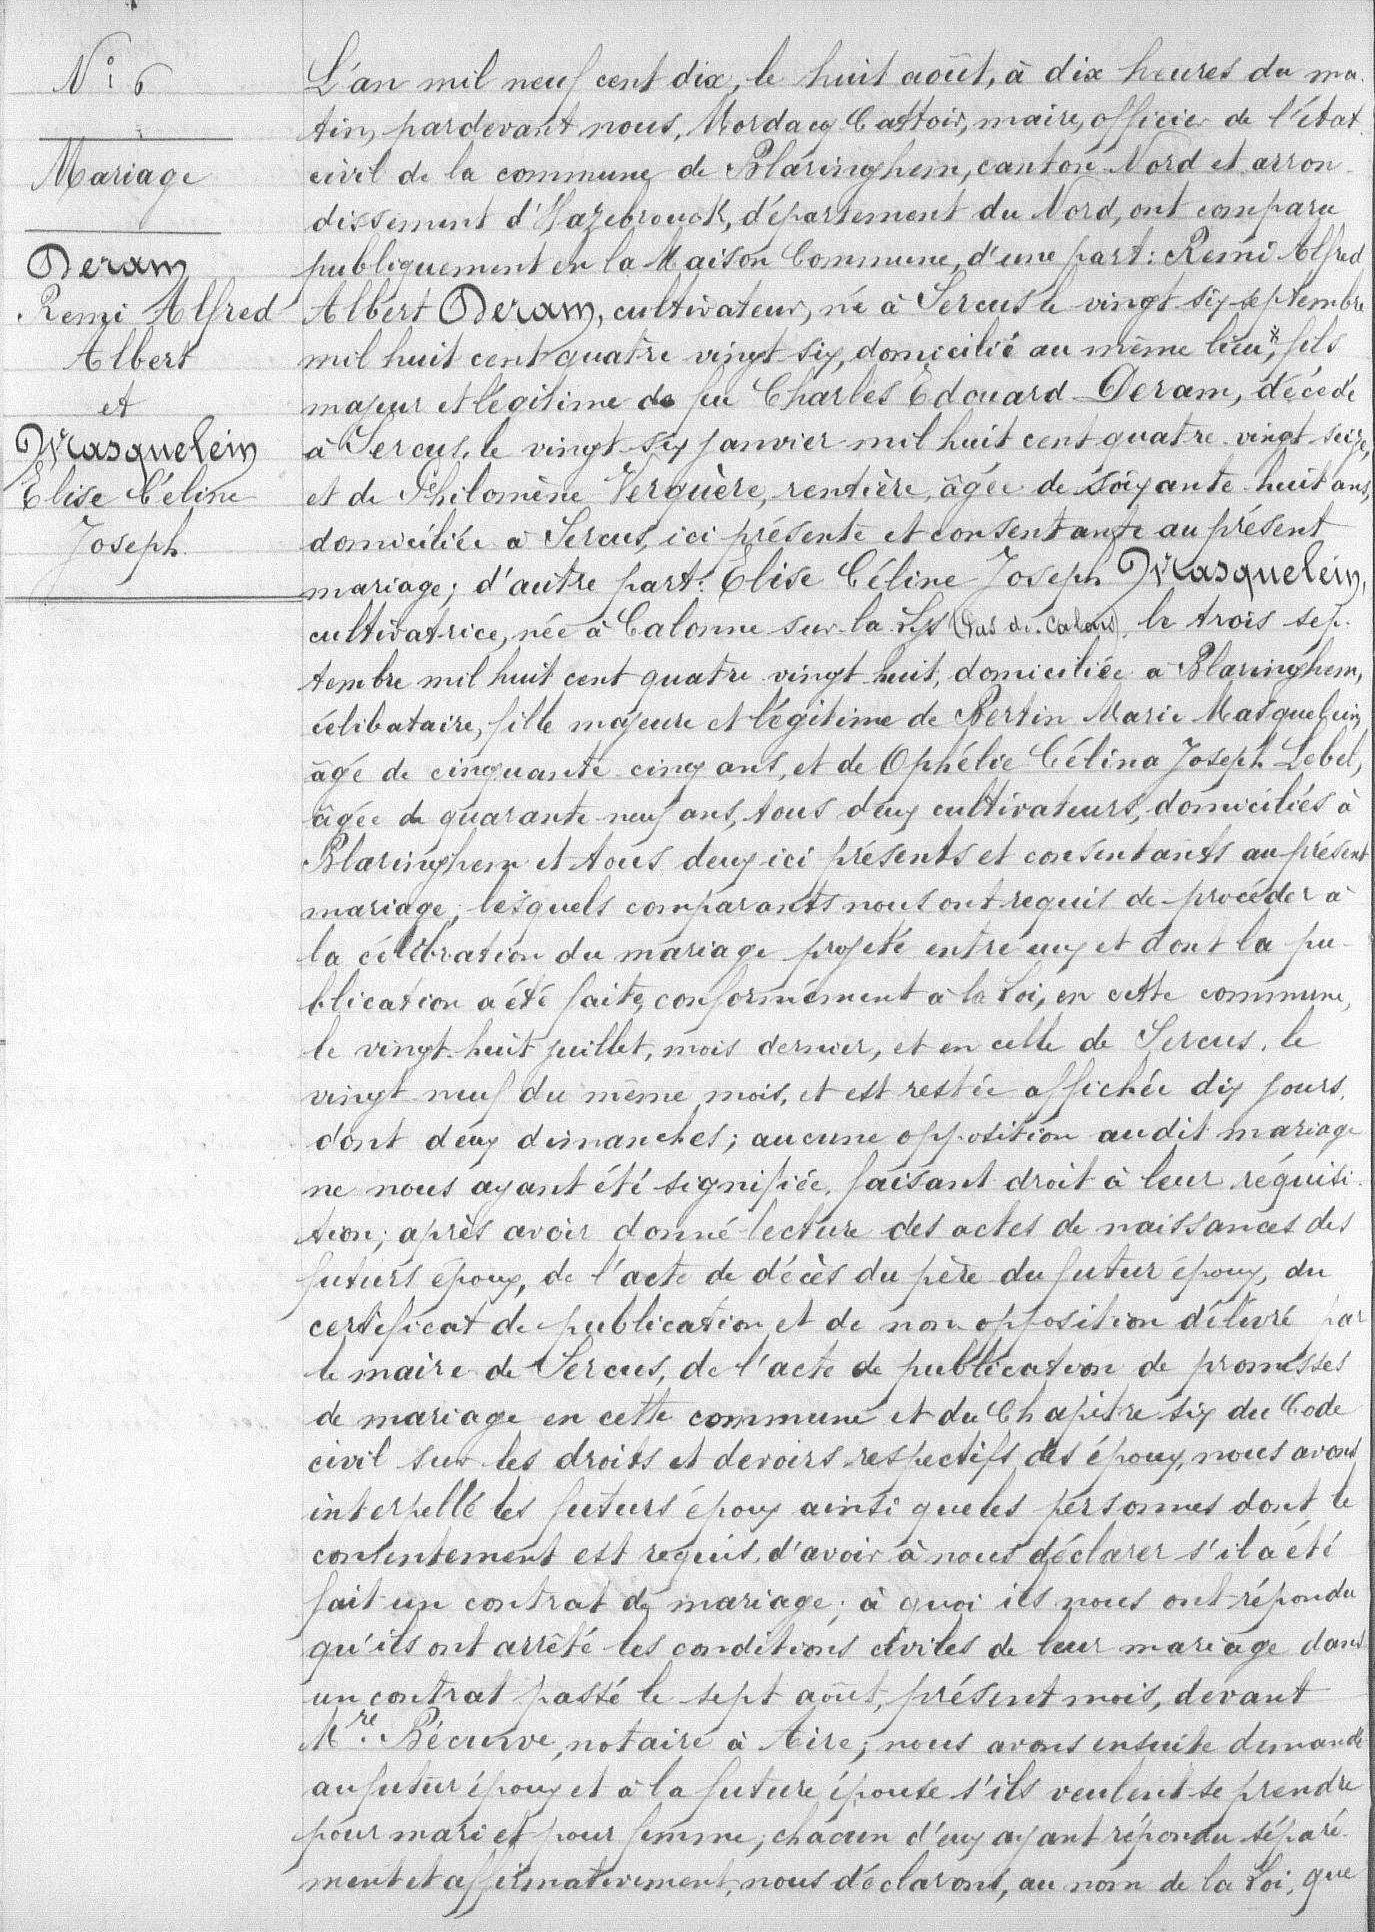 N° 6
Mariage
Deram
Remi Alfred
Albert
et
Masquelein
Elise Céline
Joseph
L'an mil neuf cent dix, le huit août, à dix heures du ma
tin, pardevant nous, Mordacq Castoir, maire, officier de l'état
civil de la commune de Blaringhem, canton Nord et arron
dissement d'Hazebrouck, département du Nord, ont comparu
publiquement en la Maison Commune, d'une part: Remi Alfred
Albert Deram, cultivateur, né à Sercus le vingt six septembre
mil huit cent quatre vingt six, domicilié au même lieu*, fils
majeur et légitime de feu Charles Edouard Deram, décédé
à Sercus, le vingt six janvier mil huit cent quatre vingt seize,
et de Philomène Verquère, rentière, âgée de soixante huit ans,
domiciliée à Sercus, ici présente et consentante au présent
mariage; d'autre part: Elise Céline Joseph Masquelein,
cultivatrice, née à Calonne sur la Lys (Pas de Calais), le trois sep-
tembre mil huit cent quatre vingt huit, domiciliée à Blaringhem,
célibataire, fille majeure et légitime de Bertin Marie Masquelein,
âgé de cinquante cinq ans, et de Ophélie Célina Joseph Lebel,
âgée de quarante neuf ans, tous deux cultivateurs, domiciliés à
Blaringhem et tous deux ici présents et consentants au présent
mariage; lesquels comparants nous ont requis de procéder à
la célébration du mariage projeté entre eux et dont la pu-
blication a été faite, conformément à la Loi, en cette commune,
le vingt huit juillet, mois dernier, et en celle de Sercus, le
vingt neuf du même mois, et est restée affichée dix jours,
dont deux dimanches; aucune opposition audit mariage
ne nous ayant été signifiée, faisant droit à leur réquisi-
tion; après avoir donné lecture des actes de naissances des
futurs époux, de l'acte de décès du père du futur époux, du
certificat de publication et de non opposition délivré par
le maire de Sercus, de l'acte de publication de promesses
de mariage en cette commune et du Chapitre six du Code
civil sur les droits et devoirs respectifs des époux, nous avons
interpellé les futurs époux ainsi que les personnes dont le
consentement est requis, d'avoir à nous déclarer s'il a été
fait un contrat de mariage; à quoi ils nous ont répondu
qu'ils ont arrêté les conditions civiles de leur mariage dans
un contrat passé le sept août, présent mois, devant
Mre. Bécuwe, notaire à Aire; nous avons ensuite demandé
au futur époux et à la future épouse s'ils veulent se prendre
pour mari et pour femme; chacun d'eux ayant répondu séparé-
ment et affirmativement, nous déclarons, au nom de la Loi, que